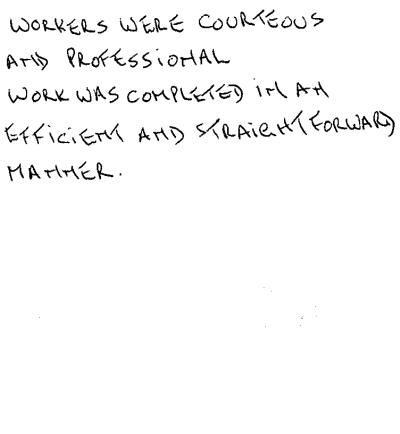 WORKERS WERE COURTEOUS
AND PROFESSIONAL
WORK WAS COMPLETED IN AN
EFFICIENT AND STRAIGHTFORWARD
MANNER.